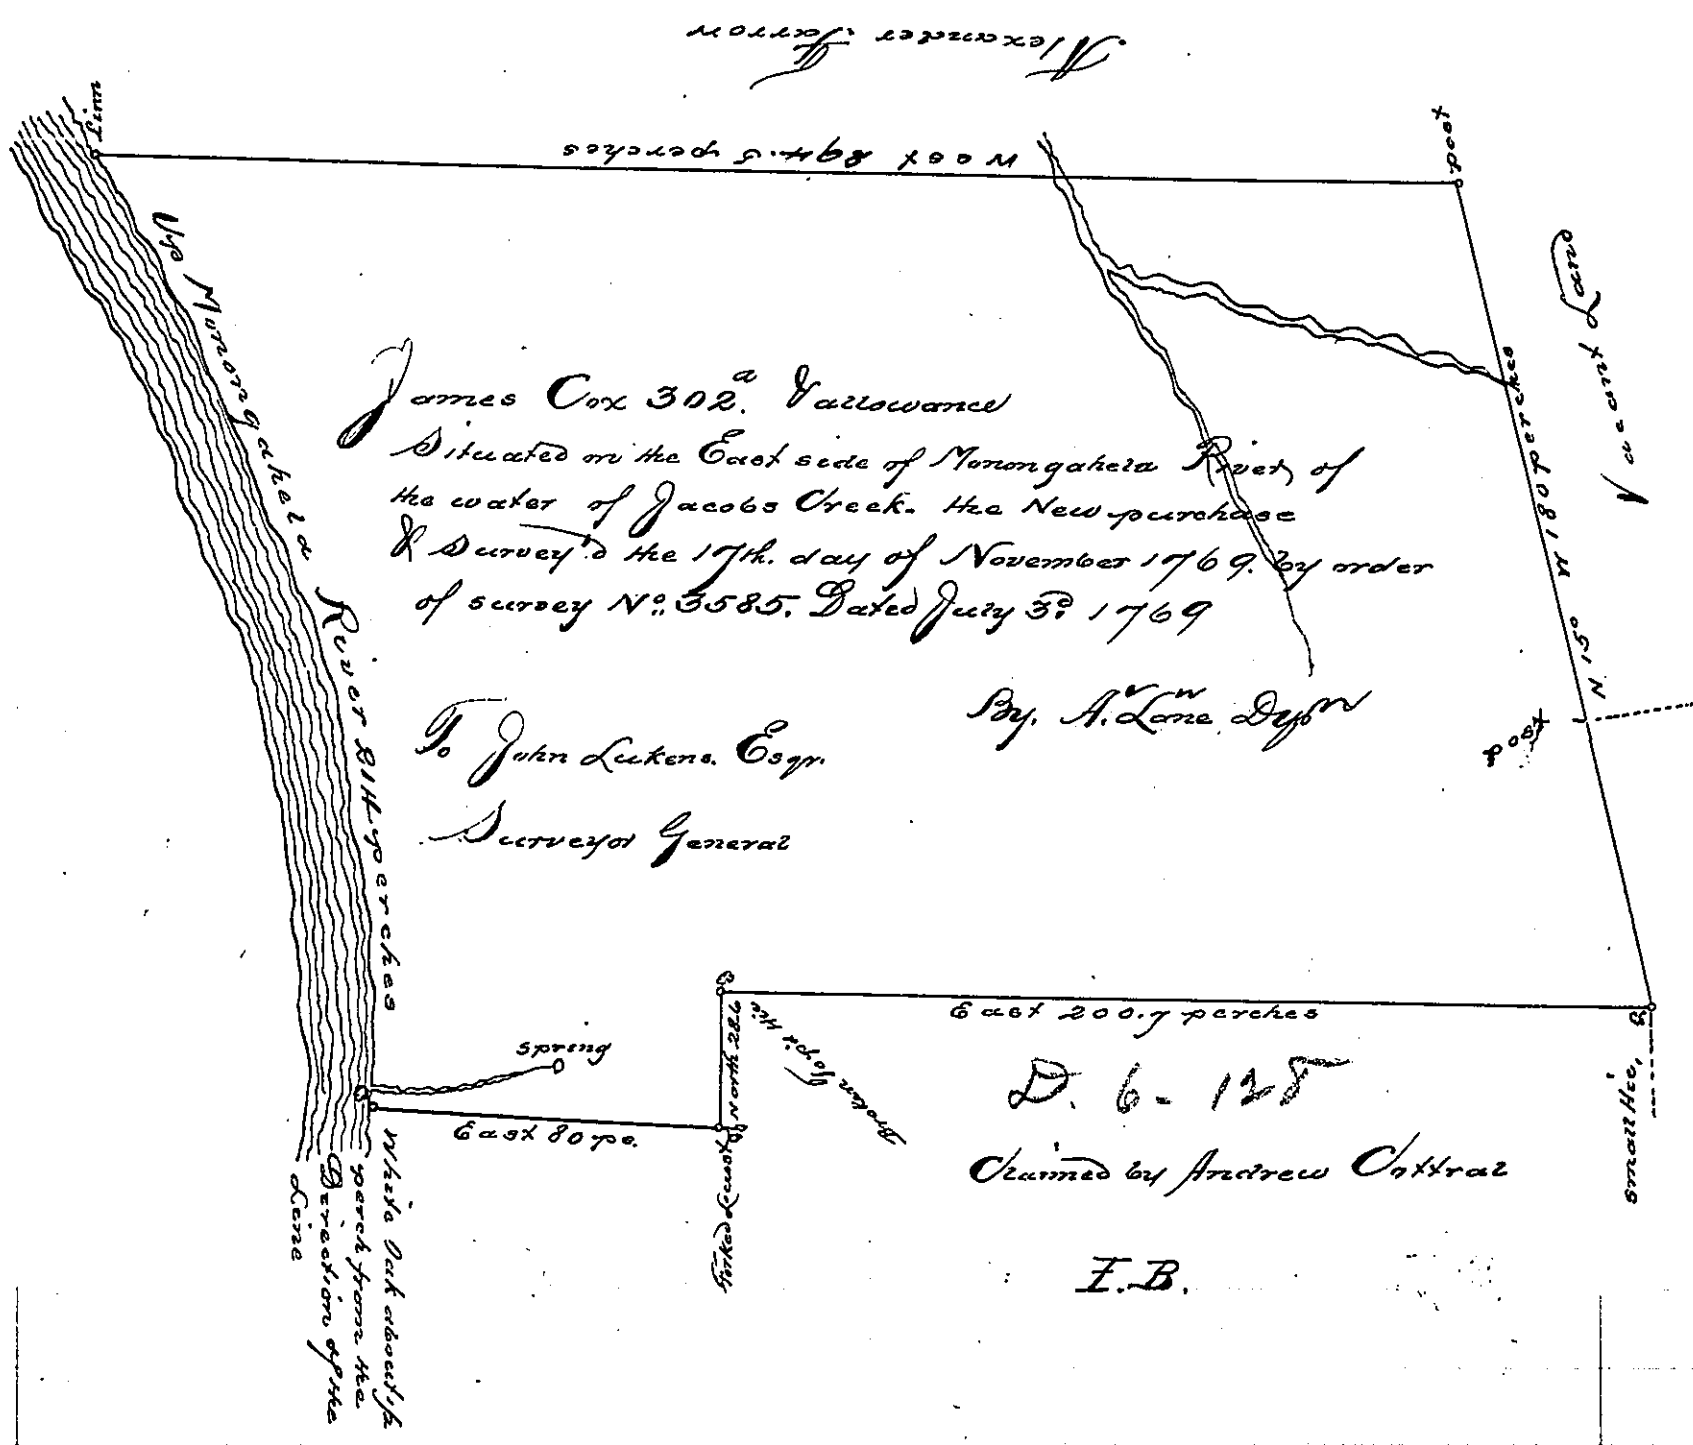 Alexander Farrow
West 294.5 perches
Linn
post
Vacant Land
N 15° W 180 perches
post
Up Monongahela River 214 perches
James Cox 302.a & allowance
Situated on the East side of Monongahela River, of
the water of Jacobs Creek. the New purchase
& Survey'd the 17th. day of November 1769. by order
of survey No. 3585. Dated July 3d. 1769
By. A. Lane
To John Lukens. Esqr.
Surveyor General
East 200.7 perches
North 28.6
Broken Top't Hic
spring
East 80 pe.
Forked Locust
small Hic,
D. 6 - 128
Claimed by Andrew Cottral
I.B.
White Oak about
perch from the
Direction of the
Line